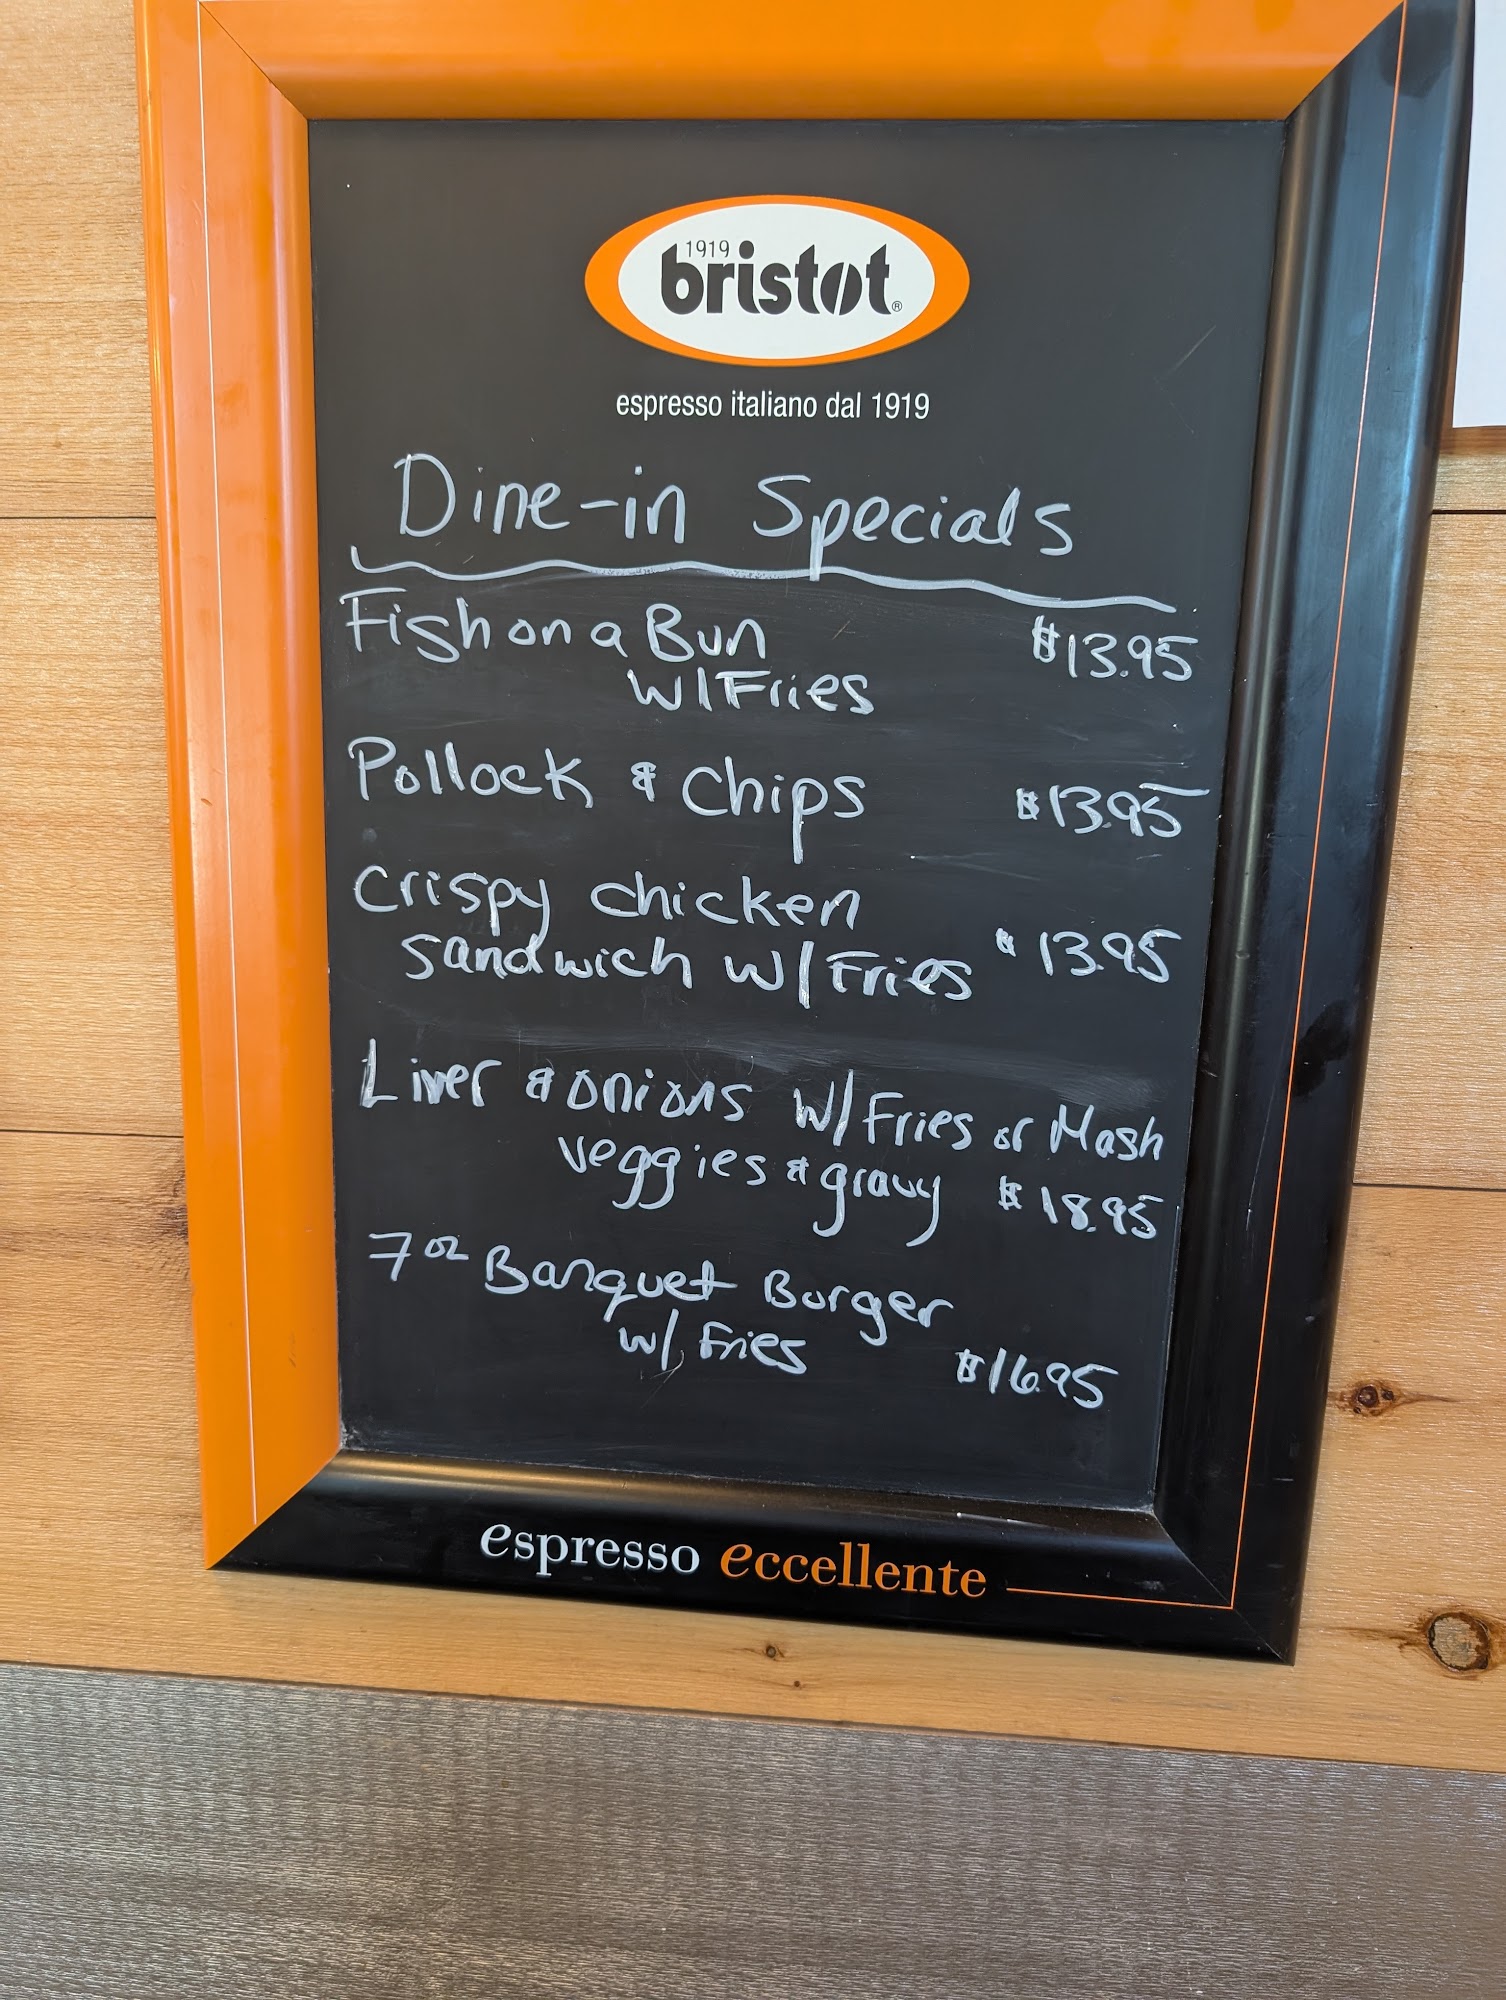 1919
bristot®
espresso italiano dal 1919
Dine-in Specials
Fish on a Bun $13.95
W/Fries
Pollock & Chips $13.95
Crispy Chicken
Sandwich W/Fries $13.95
Liver & Onions W/Fries or Mash
Veggies & gravy $18.95
7oz Banquet Burger
w/ Fries $16.95
espresso eccellente